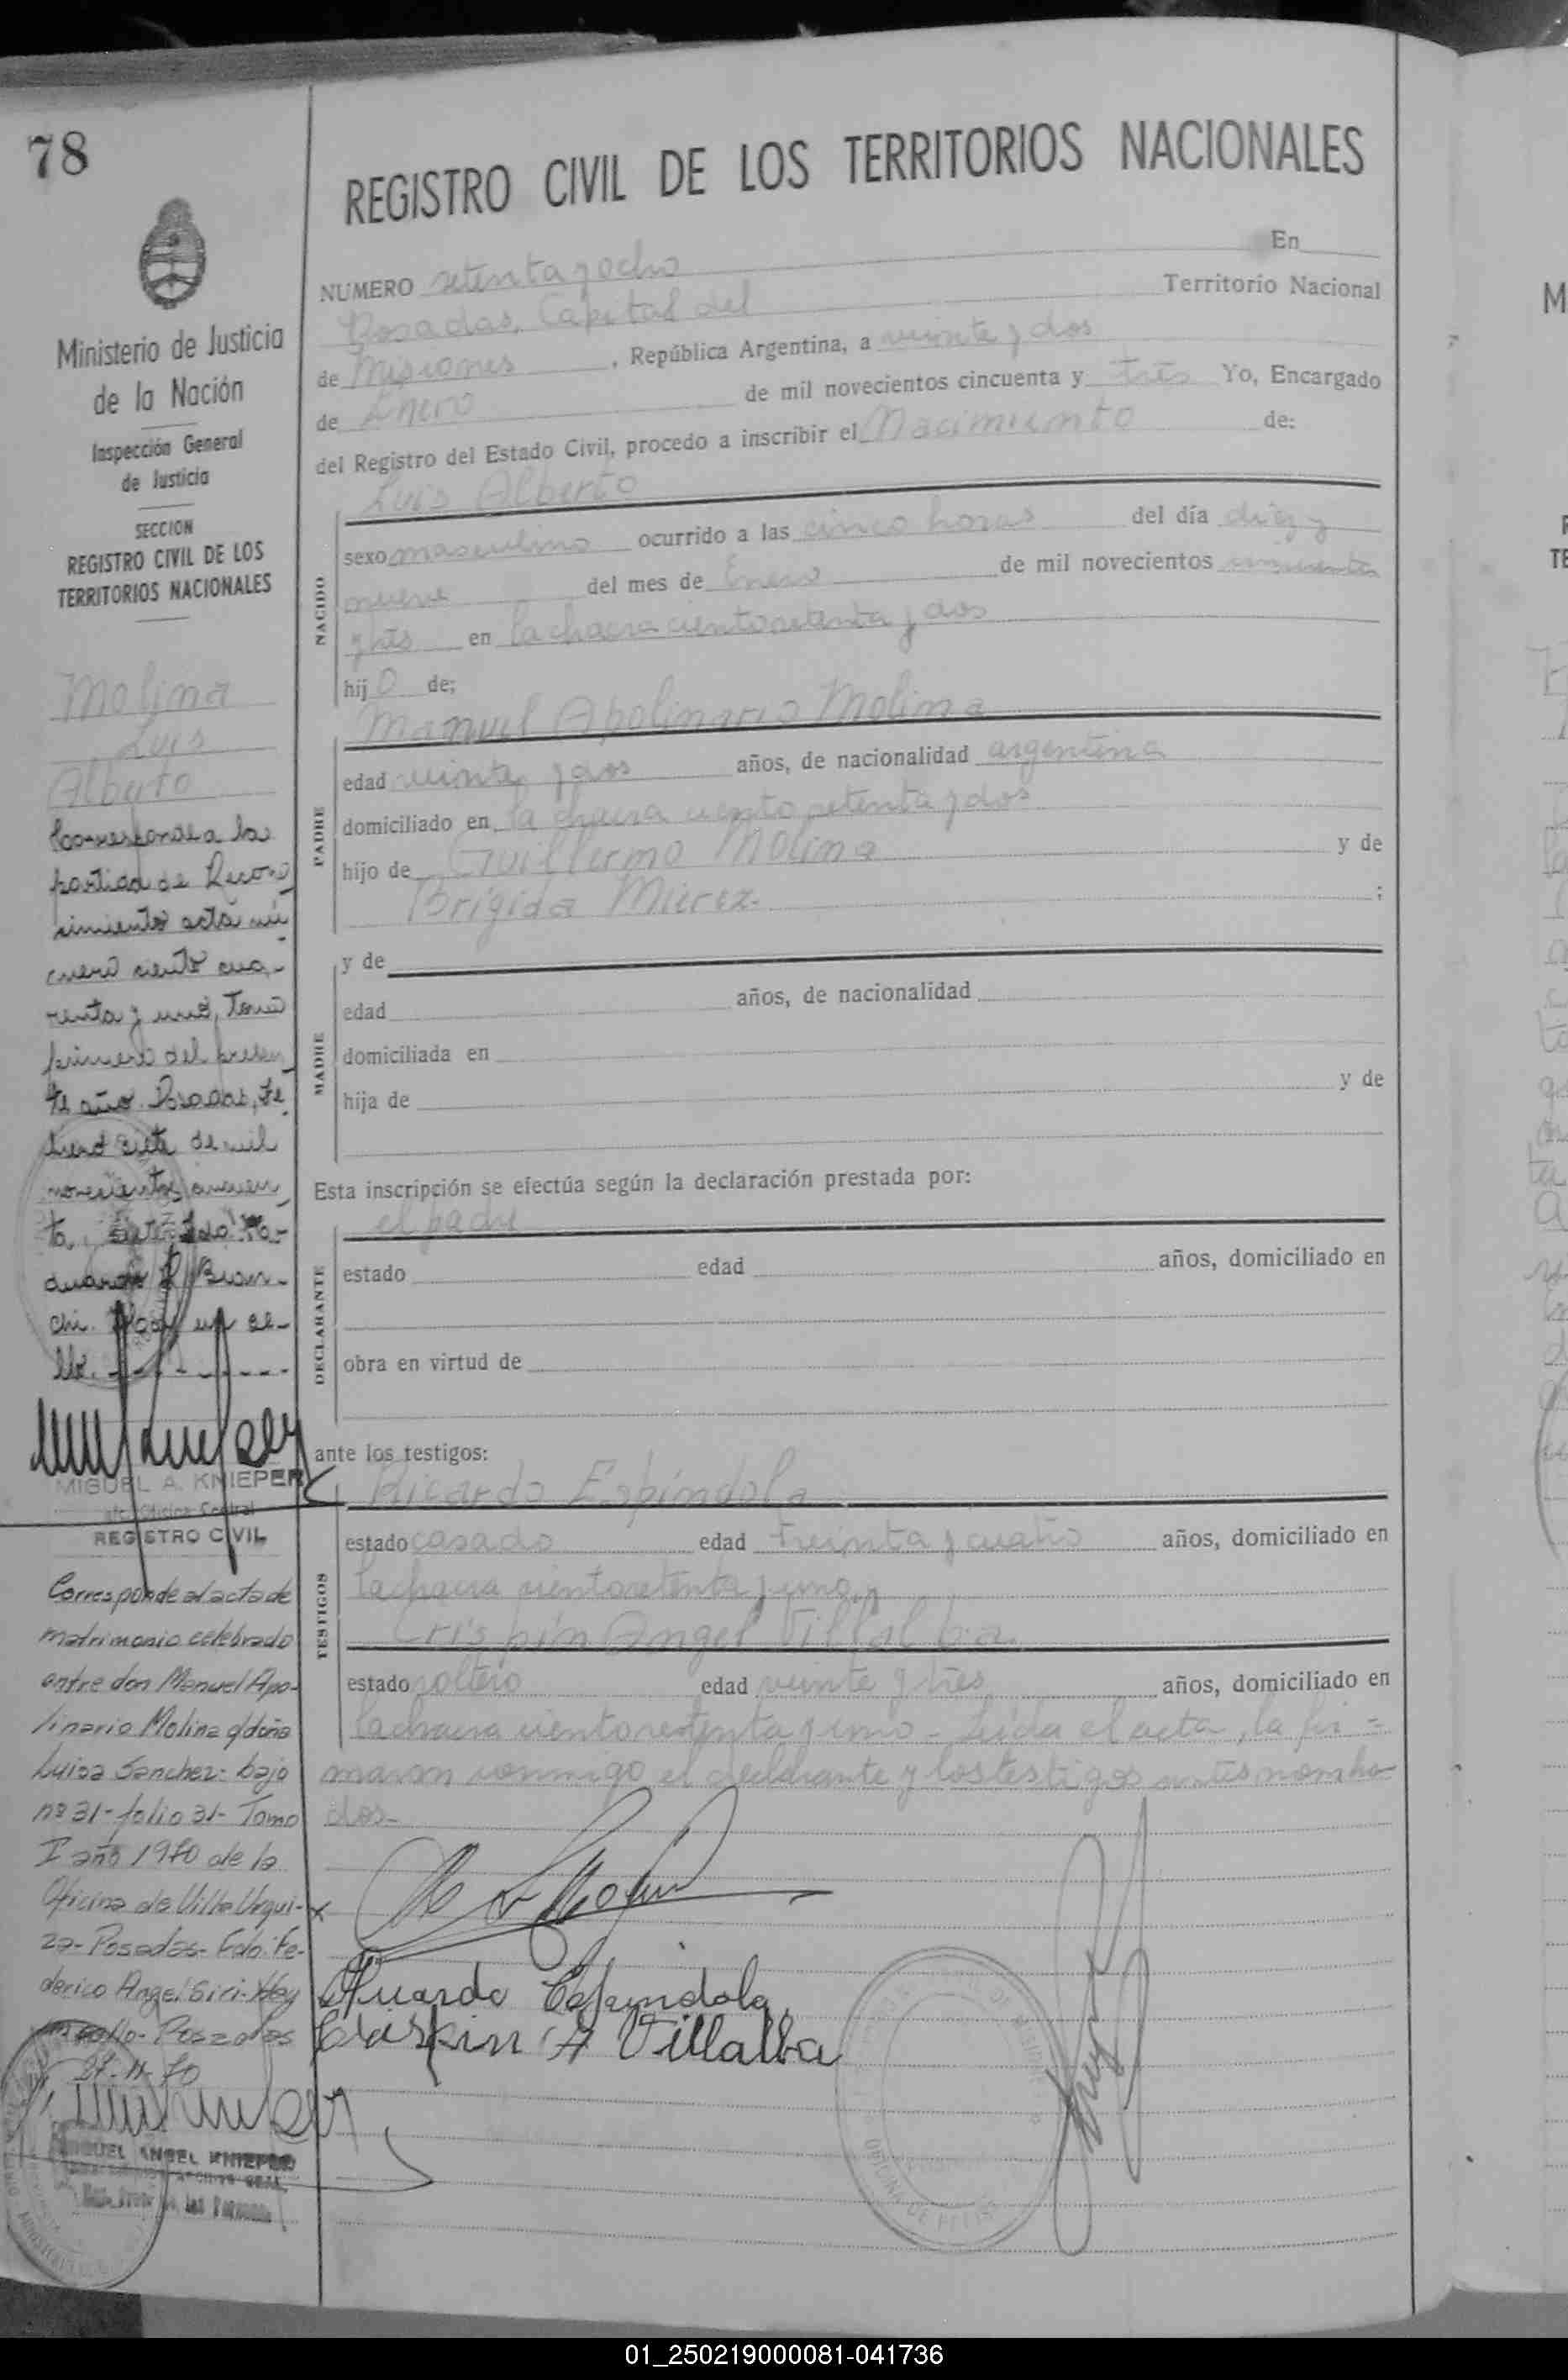 78
REGISTRO CIVIL DE LOS TERRITORIOS NACIONALES
Ministerio de Justicia
de la Nación
Inspección General
de Justicia
SECCION
REGISTRO CIVIL DE LOS
TERRITORIOS NACIONALES
Molina
Luis
Alberto
Corresponde a la
partida de Recono
simiento acta nú
mero ciento cua-
renta y uno, Tomo
primero del presen
te año. Posadas, Fe
brero siete de mil
novecientos cincuen
ta
Bian-
chi. Hay un se-
llo.
MIGUEL A. KNIEPER
REGISTRO CIVIL
Corresponde al acta de
matrimonio celebrado
entre don Manuel Apo-
linario Molina y doña
Luisa Sanchez- bajo
nº 31- folio 31- Tomo
I año 1970 de la
Oficina de Villa Urqui-
za- Posadas- Fdo: Fe-
derico Angel Siri- Hay
sello- Posadas
27-11-70
MIGUEL ANGEL KNIEPER
NUMERO setenta y ocho En
Posadas, Capital del Territorio Nacional
de Misiones, República Argentina, a veinte y dos
de Enero de mil novecientos cincuenta y tres Yo, Encargado
del Registro del Estado Civil, procedo a inscribir el Nacimiento de:
Luis Alberto
NACIDO
sexo masculino ocurrido a las cinco horas del día diez y
nueve del mes de Enero de mil novecientos cincuenta
y tres en la chacra ciento setenta y dos
hijo de;
Manuel Apolinario Molina
PADRE
edad veinte y dos años, de nacionalidad argentina
domiciliado en la chacra ciento setenta y dos
hijo de Guillermo Molina y de
Brígida Mierez- ;
MADRE
y de
edad años, de nacionalidad
domiciliada en
hija de y de
Esta inscripción se efectúa según la declaración prestada por:
el padre
DECLARANTE
estado edad años, domiciliado en
obra en virtud de
ante los testigos:
Ricardo Espíndola
TESTIGOS
estado casado edad treinta y cuatro años, domiciliado en
la chacra ciento setenta y uno, y
Crispín Angel Villalba
estado soltero edad veinte y tres años, domiciliado en
la chacra ciento setenta y uno- Leída el acta, la fir=
maron conmigo el declarante y los testigos antes nombra
dos-
Ricardo Espindola
Crispin A Villalba
01_250219000081-041736